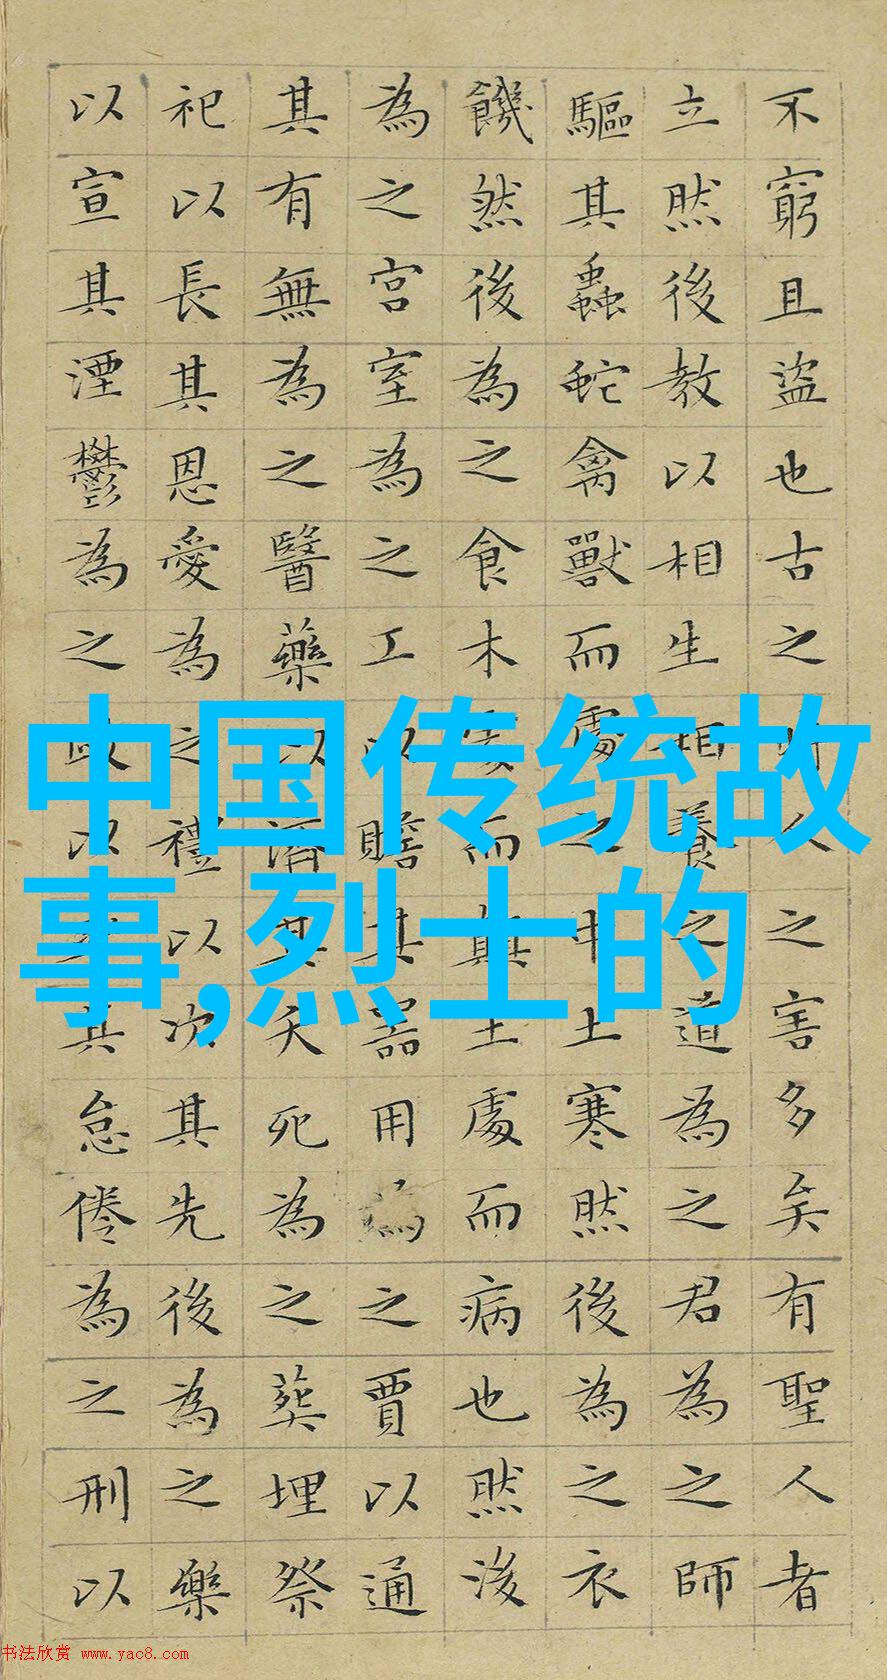 不窮且盜也古之人之害多矣有聖人者
立然後教以相生相養之道為之君為之師
驅其蟲蛇禽獸而處之中土寒然後為之衣
饑然後為之食木處而顛土處而病也然後
為之宮室為之工以贍其器用為之賈以通
其有無為之醫藥以濟其夭死為之葬埋祭
祀以長其恩愛為之禮以次其先後為之樂
以宣其湮鬱為之政以其怠倦為之刑以
中国传统故
事,烈士的
书法欣赏 www.yac8.com